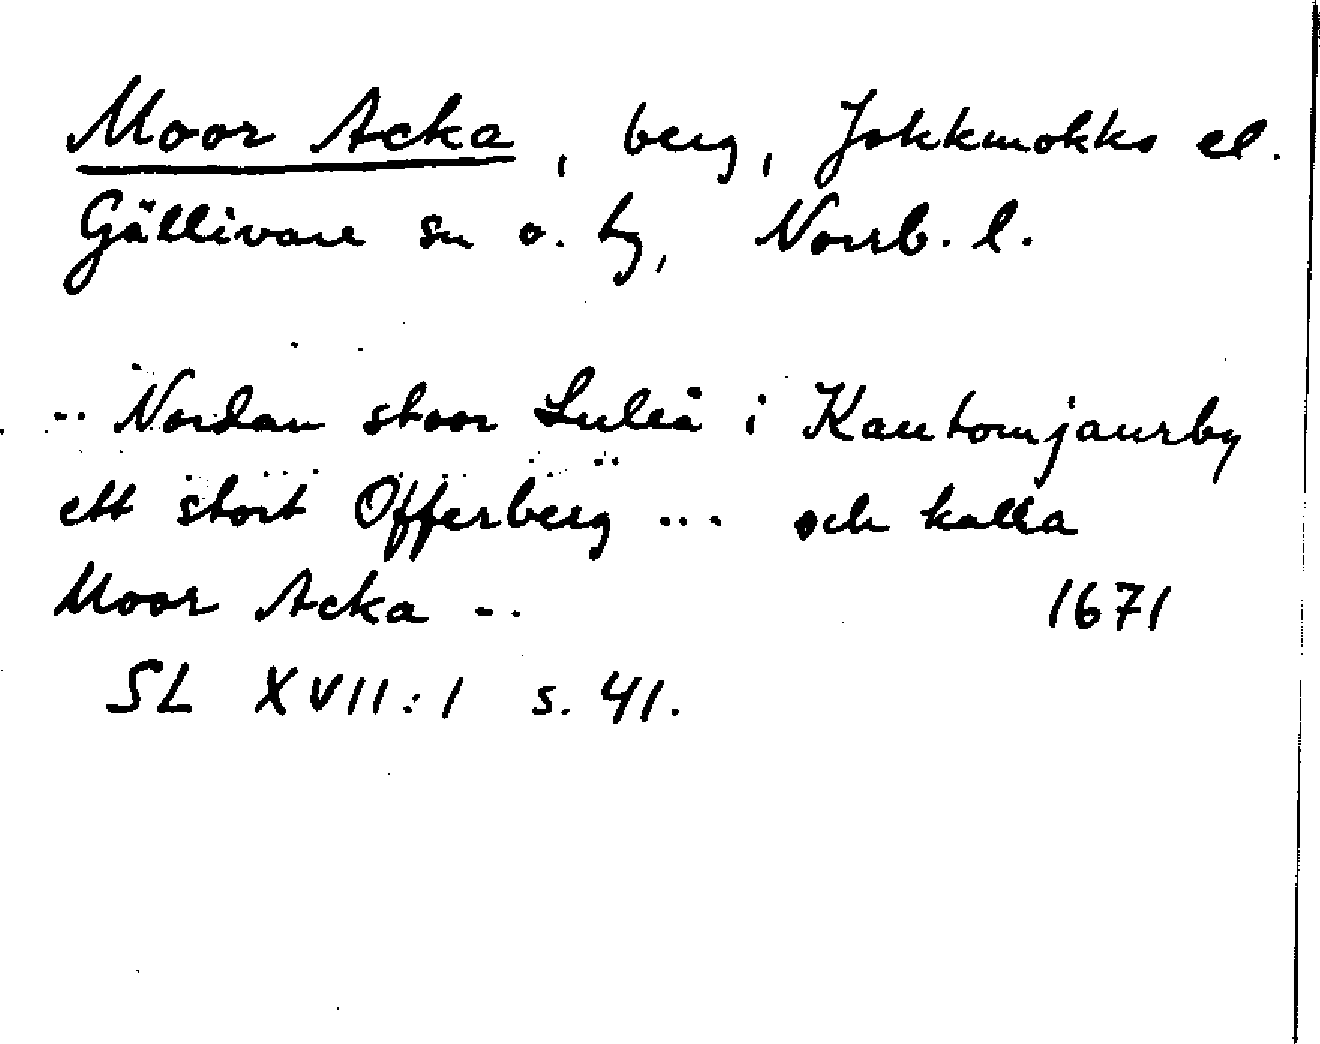 Moor Acka, berg, Jokkmokks el.
Gällivare sn o. tg, Norrb. l.
.. Nordan stoor Luleå i Kautomjaurby
ett stort Offerberg ... och kalla
Moor Acka .. 1671
SL XVII:1 s. 41.